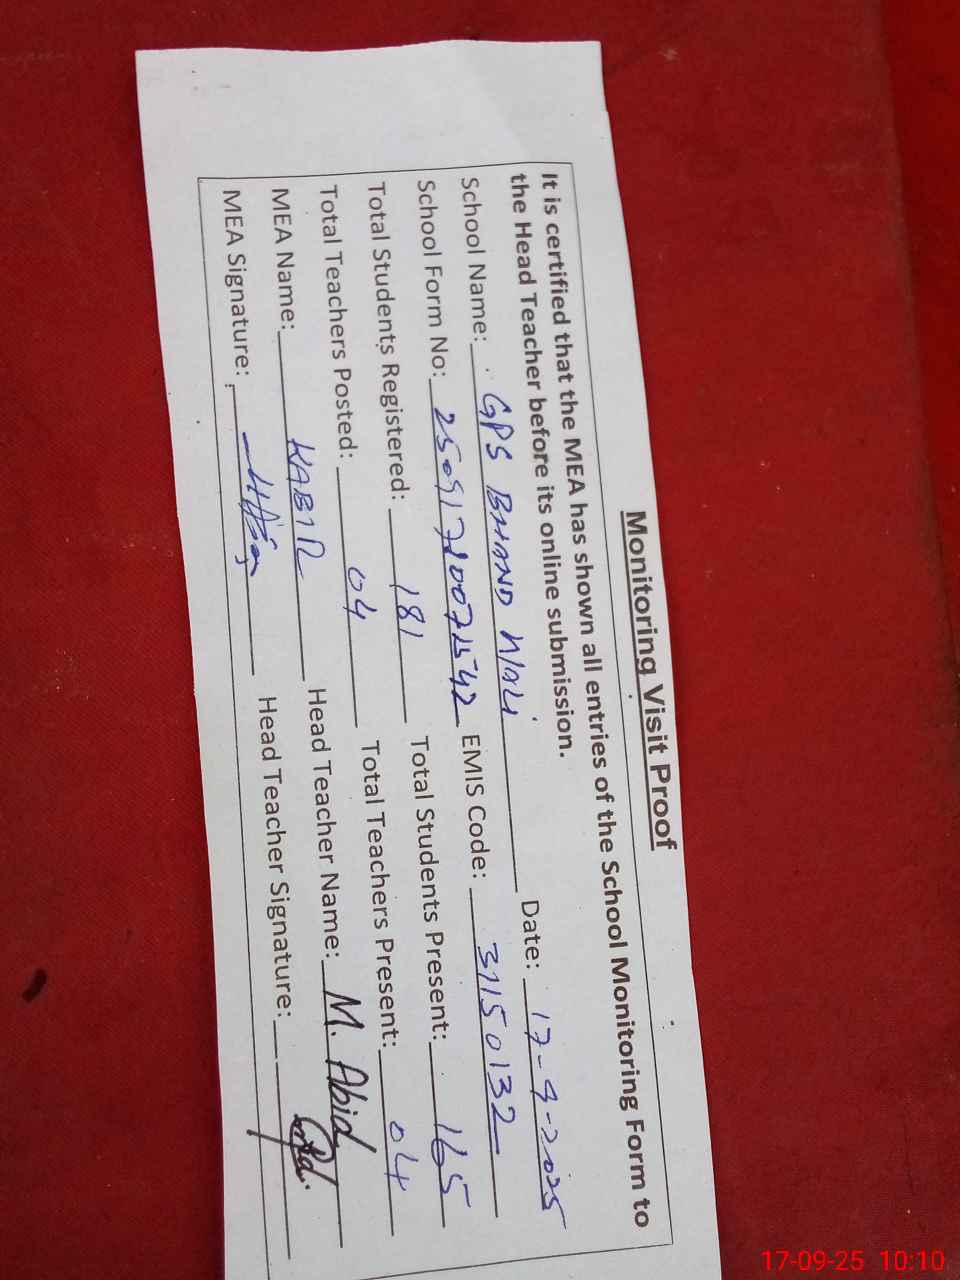 Monitoring Visit Proof
It is certified that the MEA has shown all entries of the School Monitoring Form to
the Head Teacher before its online submission.
School Name: GPS BHAND Date: 17-9-2025
School Form No: EMIS Code: 31150132
Total Students Registered: 181 Total Students Present: 165
Total Teachers Posted: 04 Total Teachers Present: 04
MEA Name: KABIR Head Teacher Name: M. Abid
MEA Signature: Head Teacher Signature:
17-09-25 10:10